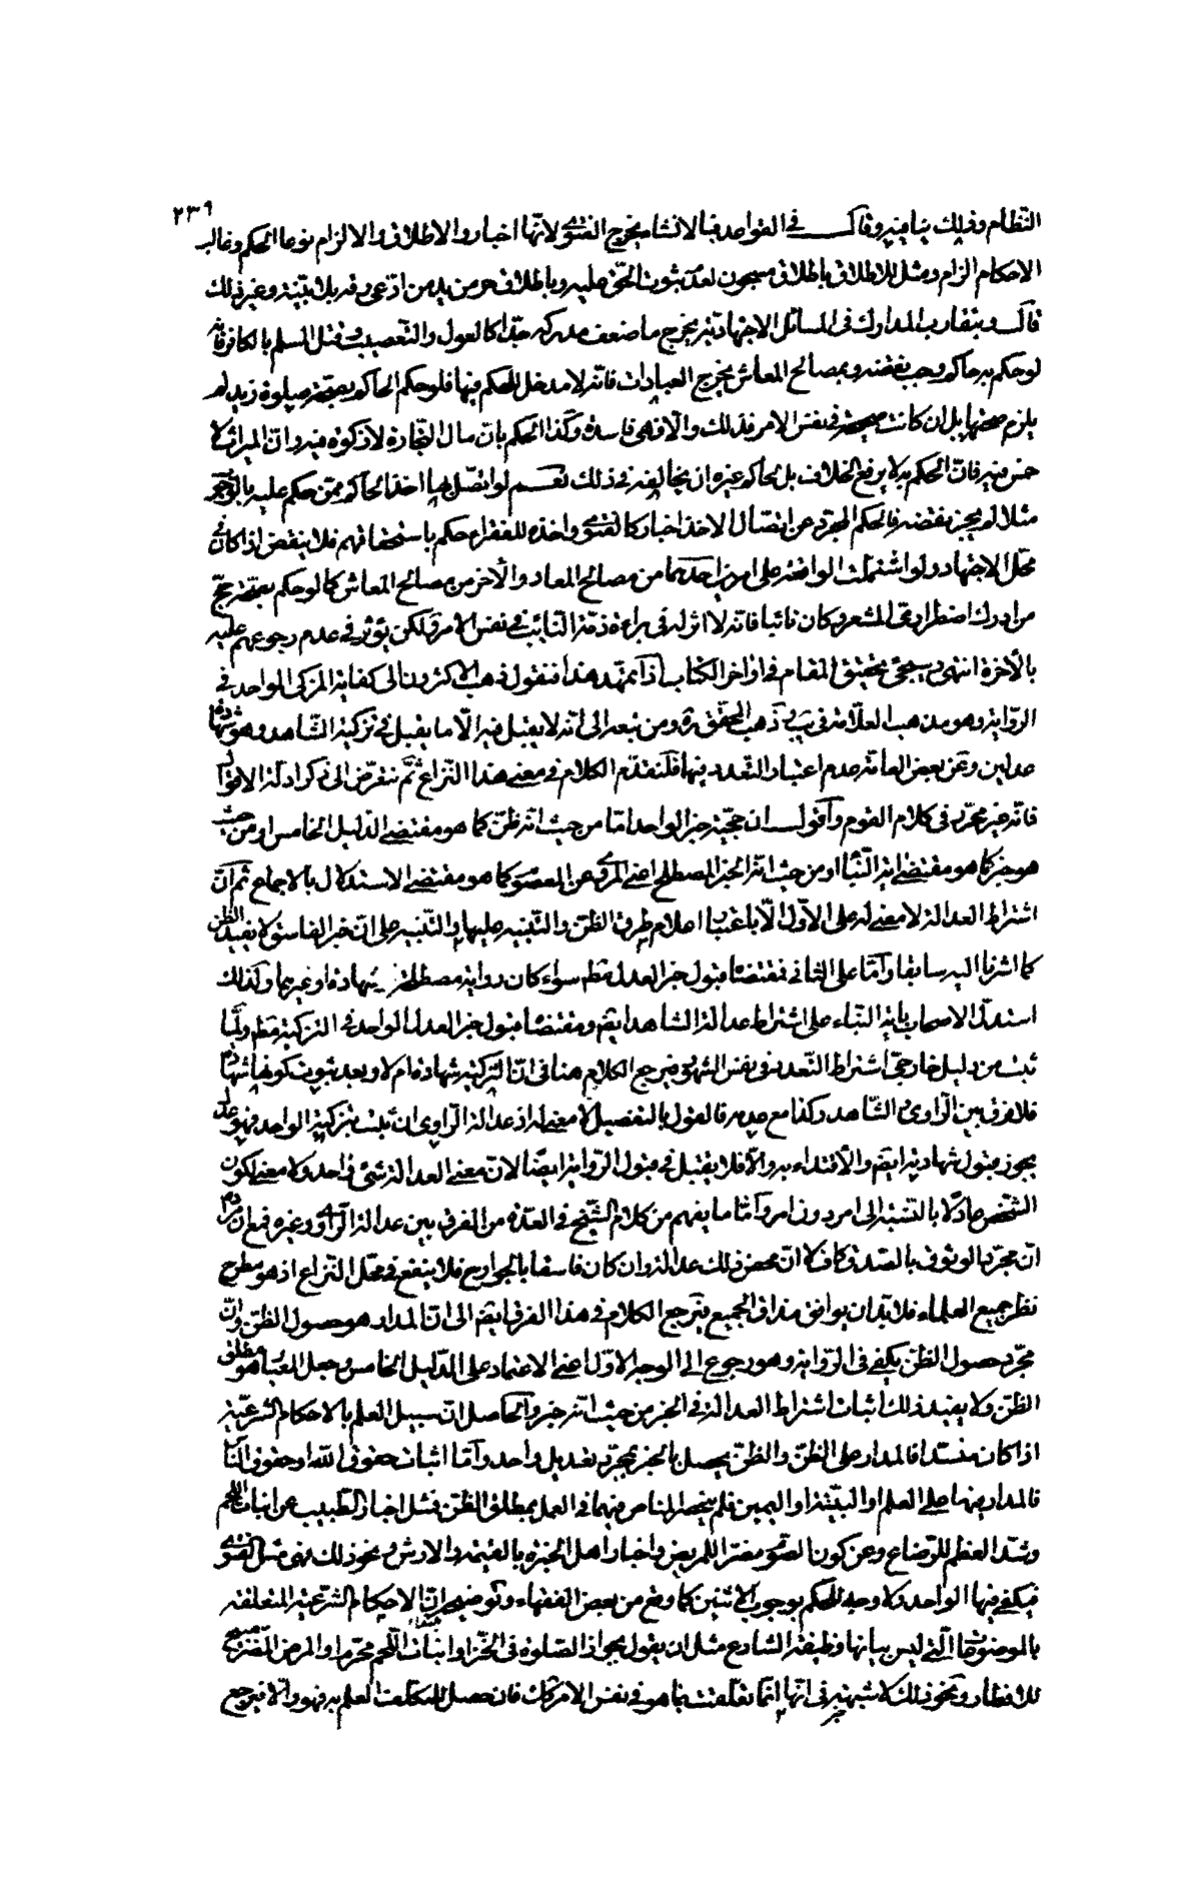 ٢٣٩
النّظام وذلك ينافيه وقال في القواعد فبالانشاء يخرج الفتوى لانّها اخبار والاطلاق والالزام نوعا الحكم وغالب
الاحكام الزام ومثل للاطلاق باطلاق مسجون لعدم ثبوت الحقّ عليه وباطلاق حر من يد من ادّعى رقه بلا بيّنة وغير ذلك
قال وبتقارب المدارك في المسائل الاجتهاديّة يخرج ما ضعف مدركه جدّا كالعول والتّعصيب وقتل المسلم بالكافر فانّه
لو حكم به حاكم وجب نقضه وبمصالح المعاش يخرج العبادات فانّه لا مدخل للحكم فيها فلو حكم الحاكم بصحّة صلوة زيد لم
يلزم صحّتها بل ان كانت صحيحة في نفس الامر فذلك والّا فهي فاسدة وكذا الحكم بانّ مال التّجارة لا زكوة فيه وانّ الميراث لا
خمس فيه فانّ الحكم به لا يرفع الخلاف بل لحاكم غيره ان يخالفه في ذلك نعم لو اتّصل بها اخذ الحاكم ممّن حكم عليه بالوجوب
مثلا لم يجز نقضه فالحكم المجرّد عن اتّصال الاخذ اخبار كالفتوى واخذه للفقراء حكم باستحقاقهم فلا ينقض اذا كان في
محلّ الاجتهاد ولو اشتملت الواقعة على امرين احدهما من مصالح المعاد والآخر من مصالح المعاش كما لو حكم بصحّة حجّ
من ادرك اضطراريّ المشعر وكان نائبا فانّه لا اثر له في براءة ذمّة النّائب في نفس الامر ولكن يؤثّر في عدم رجوعهم عليه
بالاجرة انتهى وسيجيء تحقيق المقام في اواخر الكتاب اذا تمهّد هذا فنقول ذهب الاكثرون الى كفاية المزكّي الواحد في
الرّواية وهو مذهب العلّامة في يب وذهب المحقّق ره ومن تبعه الى انّه لا يقبل فيه الّا ما يقبل في تزكية الشّاهد وهو شهادة
عدلين وعن بعض العامّة عدم اعتبار التّعدد فيها فلنقدّم الكلام في معنى هذا النّزاع ثمّ نتعرّض الى ذكر ادلّة الاقوال
فانّه غير محرّر في كلام القوم وأقول ان حجّيّة خبر الواحد امّا من حيث انّه ظنّ كما هو مقتضى الدّليل الخامس او من حيث
هو خبر كما هو مقتضى اية النّبأ او من حيث انّه الخبر المصطلح اعني المرويّ عن المعصوم كما هو مقتضى الاستدلال بالاجماع ثمّ انّ
اشتراط العدالة لا معنى له على الاوّل الّا باعتبار اعلام طرق الظنّ والتّنبيه عليها والتّنبيه على انّ خبر الفاسق لا يفيد الظنّ
كما اشرنا اليه سابقا وأمّا على الثّاني فمقتضاه قبول خبر العدل مطلقا سواء كان رواية مصطلحة او شهادة او غيرهما ولذلك
استدلّ الاصحاب باية النّباء على اشتراط عدالة الشّاهد ايضا ومقتضاه قبول خبر العدل الواحد في التزكية مطلقا ولمّا
ثبت من دليل خارجيّ اشتراط التّعدد في نفس الشّهود فيرجع الكلام هنا في انّ التّزكية شهادة ام لا وبعد ثبوت كونها شهادة
فلا فرق بين الرّاوي والشّاهد وكذا مع عدمه فالقول بالتفصيل لا معنى له اذ عدالة الرّاوي ان ثبت بتزكية الواحد فهو عدل
يجوز قبول شهادته ايضا والاقتداء به والّا فلا يقبل في قبول الرّواية ايضا لانّ معنى العدالة شيء واحد ولا معنى لكون
الشّخص عادلا بالنّسبة الى امر دون امر وأمّا ما يفهم من كلام الشّيخ في العدّة من الفرق بين عدالة الرّاوي وغيره فمع ان مراده
انّ مجرّد الوثوق بالصّدق كاف لا انّ محض ذلك عدالة وان كان فاسقا بالجوارح فلا ينفع في محلّ النّزاع اذ هو مطرح
نظر جميع العلماء فلا بدّ ان يوافق مذاق الجميع يترجع الكلام في هذا الفرق ايضا الى انّ المدار هو حصول الظنّ وانّ
مجرّد حصول الظنّ يكفي في الرّواية وهو رجوع الى الوجه الاوّل اعني الاعتماد على الدّليل الخامس وجعل المعيار هو مطلق
الظنّ ولا يفيد ذلك اثبات اشتراط العدالة في الخبر من حيث انّه خبر والحاصل انّ سبيل العلم بالاحكام الشّرعيّة
اذا كان منسدّا فالمدار على الظنّ والظنّ يحصل بالخبر بمجرّد تعديل واحد وأمّا اثبات حقوق اللّه او حقوق النّاس
فالمدار فيها على العلم او البيّنة او اليمين فلم ينحصر المناص فيهما في العمل بمطلق الظنّ فمثل اخبار الطّبيب عن انبات اللّحم
وشدّ العظم للرّضاع وعن كون الصّوم مضرّا للمريض واخبار اهل الخبرة بالقيمة والارش ونحو ذلك فهي مثل الفتوى
فيكفي فيها الواحد ولا وجه للحكم بوجوب الاثنين كما وقع من بعض الفقهاء وتوضيحه انّ الاحكام الشّرعيّة المتعلّقة
بالموضوعات الّتي ليس بيانها وظيفة الشّارع مثل ان يقول يجوز الصّلوة في الخزّ او انبات اللّحم محرّم او المرض المضرّ مبيح
للافطار ونحو ذلك لا شبهة في انّها انّما تعلّقت بما هو في نفس الامر كذلك فان حصل للمكلّف العلم به فهو والّا فيرجع